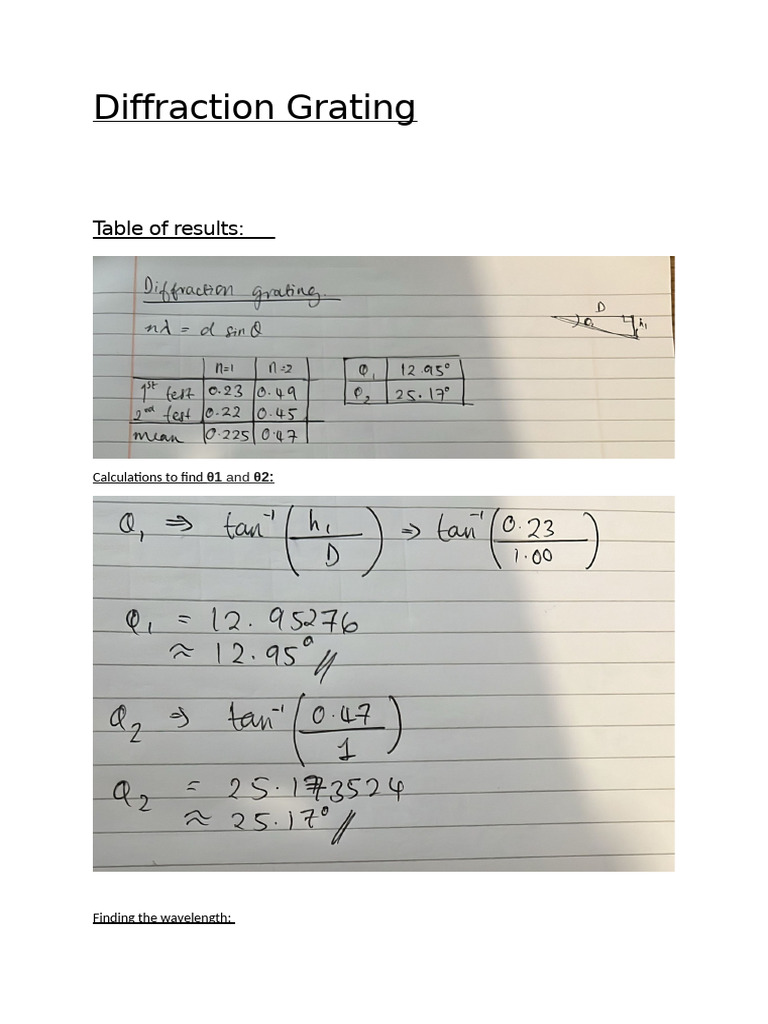 Diffraction Grating
Table of results:
Diffraction grating.
nλ = d sinθ
D
θ₁
h₁
n=1 n=2
1st test 0.23 0.49
2nd test 0.22 0.45
mean 0.225 0.47
θ₁ 12.95°
θ₂ 25.17°
Calculations to find θ1 and θ2:
θ₁ ⇒ tan⁻¹(h₁/D) ⇒ tan⁻¹(0.23/1.00)
θ₁ = 12.95276
≈ 12.95°//
θ₂ ⇒ tan⁻¹(0.47/1)
θ₂ = 25.173524
≈ 25.17°//
Finding the wavelength: